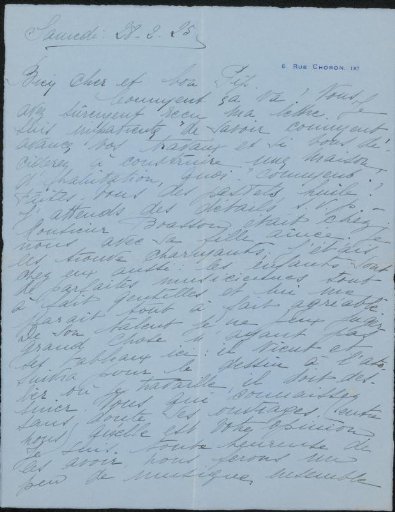 Samedi 28.2.25
6 Rue Choron, IXe
Bien cher et bon Pit.
Comment ça va? Vous
avez sûrement reçu ma lettre. Je
suis impatiente de savoir comment
avance vos travaux et si vous dé-
ciderez à construire une maison
d'habitation, quoi? comment?
Faites vous des pastels, huile?
J'attends des détails S.V.P.
Monsieur Boasson étant chez
nous avec sa fille aînée. Je
les trouve charmants, j'étais
chez eux aussi. les enfants sont
de parfaites musiciennes tout
à fait gentilles et lui me
paraît tout à fait agréable.
De son talent je ne peux juger
grand chose n'ayant pas
ses tableaux ici, il vient et
pour le dessin à l'ate-
lier où je travaille, il doit des-
siner. Vous qui connaissez
sans doute ses ouvrages, (entre
nous) quelle est votre opinion
Je suis toute heureuse de
les avoir nous ferons un
peu de musique ensemble